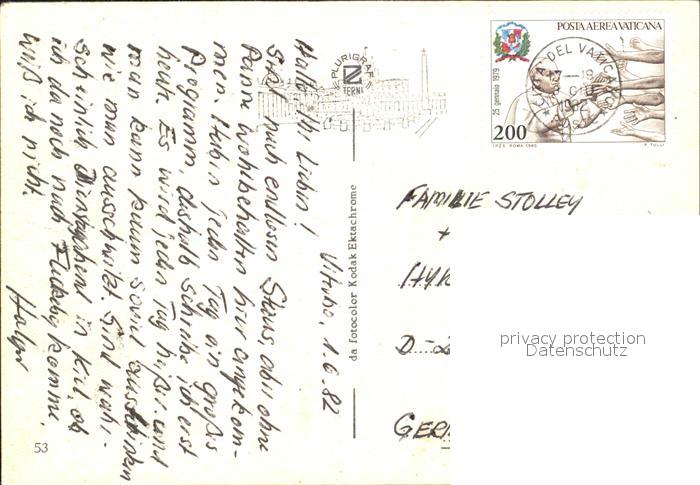 Viterbo, 1.6.82
Hallo Ihr Lieben!
Sind nach endlosen Staus, aber ohne
Panne wohlbehalten hier angekom-
men. Haben jeden Tag ein großes
Programm, deshalb schreibe ich erst
heute. Es wird jeden Tag heißer und
man kann kaum soviel austrinken
wie man ausschwitzt. Sind wahr-
scheinlich Dienstabend in Kiel, ob
ich da noch nach Fleckeby komme,
weiß ich nicht.
Holger
PLURIGRAF
N
TERNI
da fotocolor Kodak Ektachrome
53
POSTA AEREA VATICANA
25 gennaio 1979
200
I.P.Z.S. ROMA 1980
P. TULLI
CITTA DEL VATICANO
17-18
GIU
1982
POSTE
FAMILIE STOLLEY
+
D-2
GER
privacy protection
Datenschutz